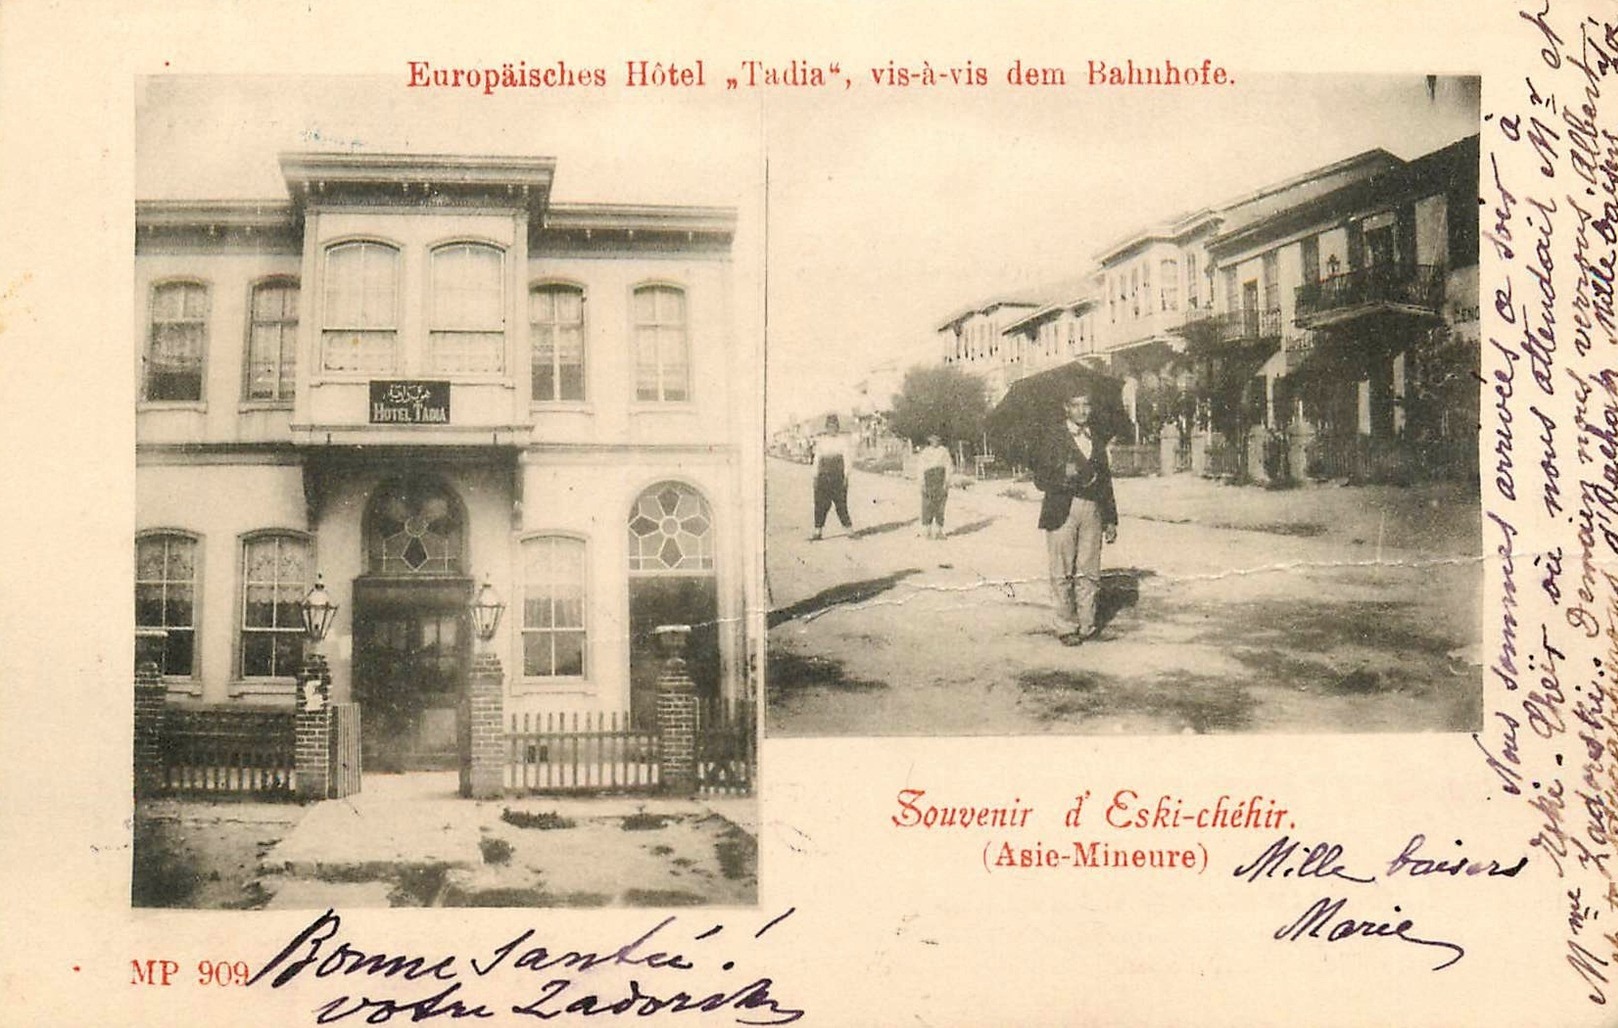 Europäisches Hôtel „Tadia“, vis-à-vis dem Bahnhofe.
HOTEL TADIA
Souvenir d' Eski-chéhir.
(Asie-Mineure)
Mille baisers
Marie
MP 909
Bonne Santé!
votre Zadorsky
Nous sommes arrivés ce soir à
Eski-Cheïr où nous attendait Mr et
Mme Zadorski. Demain nous verrons Albert
Mille baisers